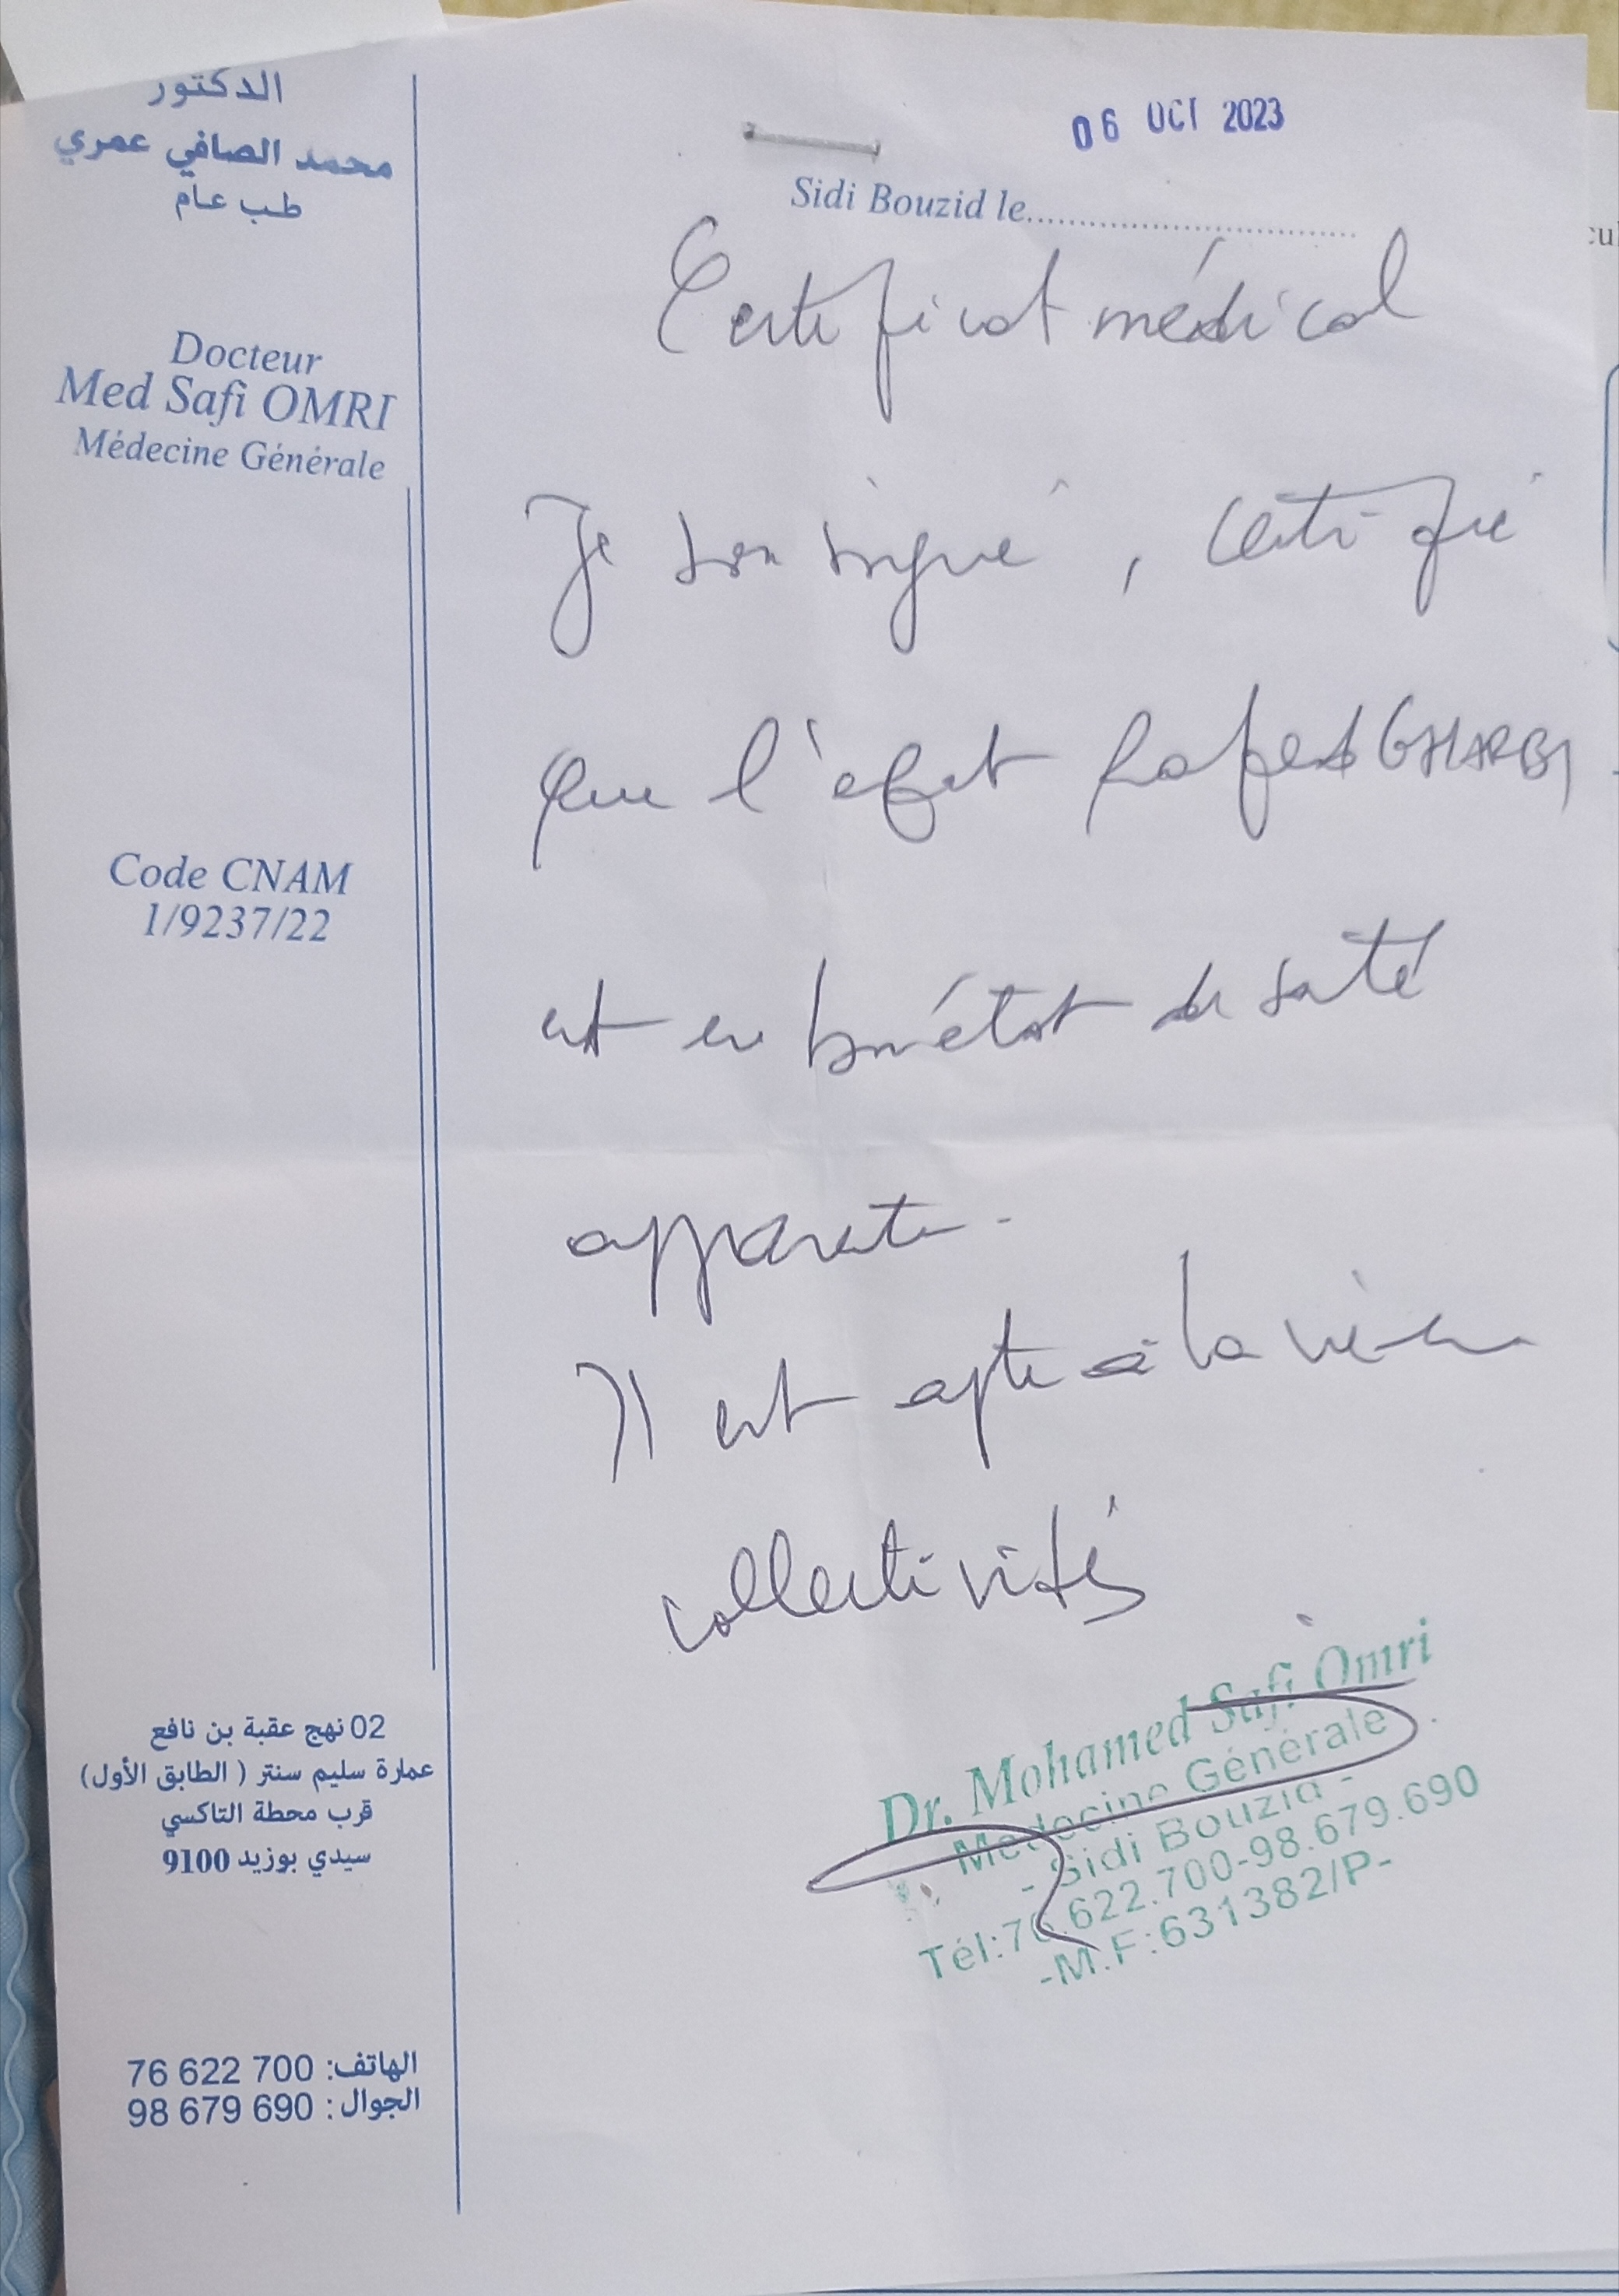 الدكتور
محمد الصافي عمري
طب عام
Docteur
Med Safi OMRI
Médecine Générale
Code CNAM
1/9237/22
02 نهج عقبة بن نافع
عمارة سليم سنتر ( الطابق الأول)
قرب محطة التاكسي
سيدي بوزيد 9100
الهاتف: 76 622 700
الجوال : 98 679 690
06 OCT 2023
Sidi Bouzid le
Certificat médical
Je soussigné, certifie
que l'enfant GHARBI
est en bon état de santé
apparente.
Il est apte à la vie en
collectivités
Dr. Mohamed Safi Omri
Médecine Générale
- Sidi Bouzid -
Tél:76.622.700-98.679.690
-M.F:631382/P-